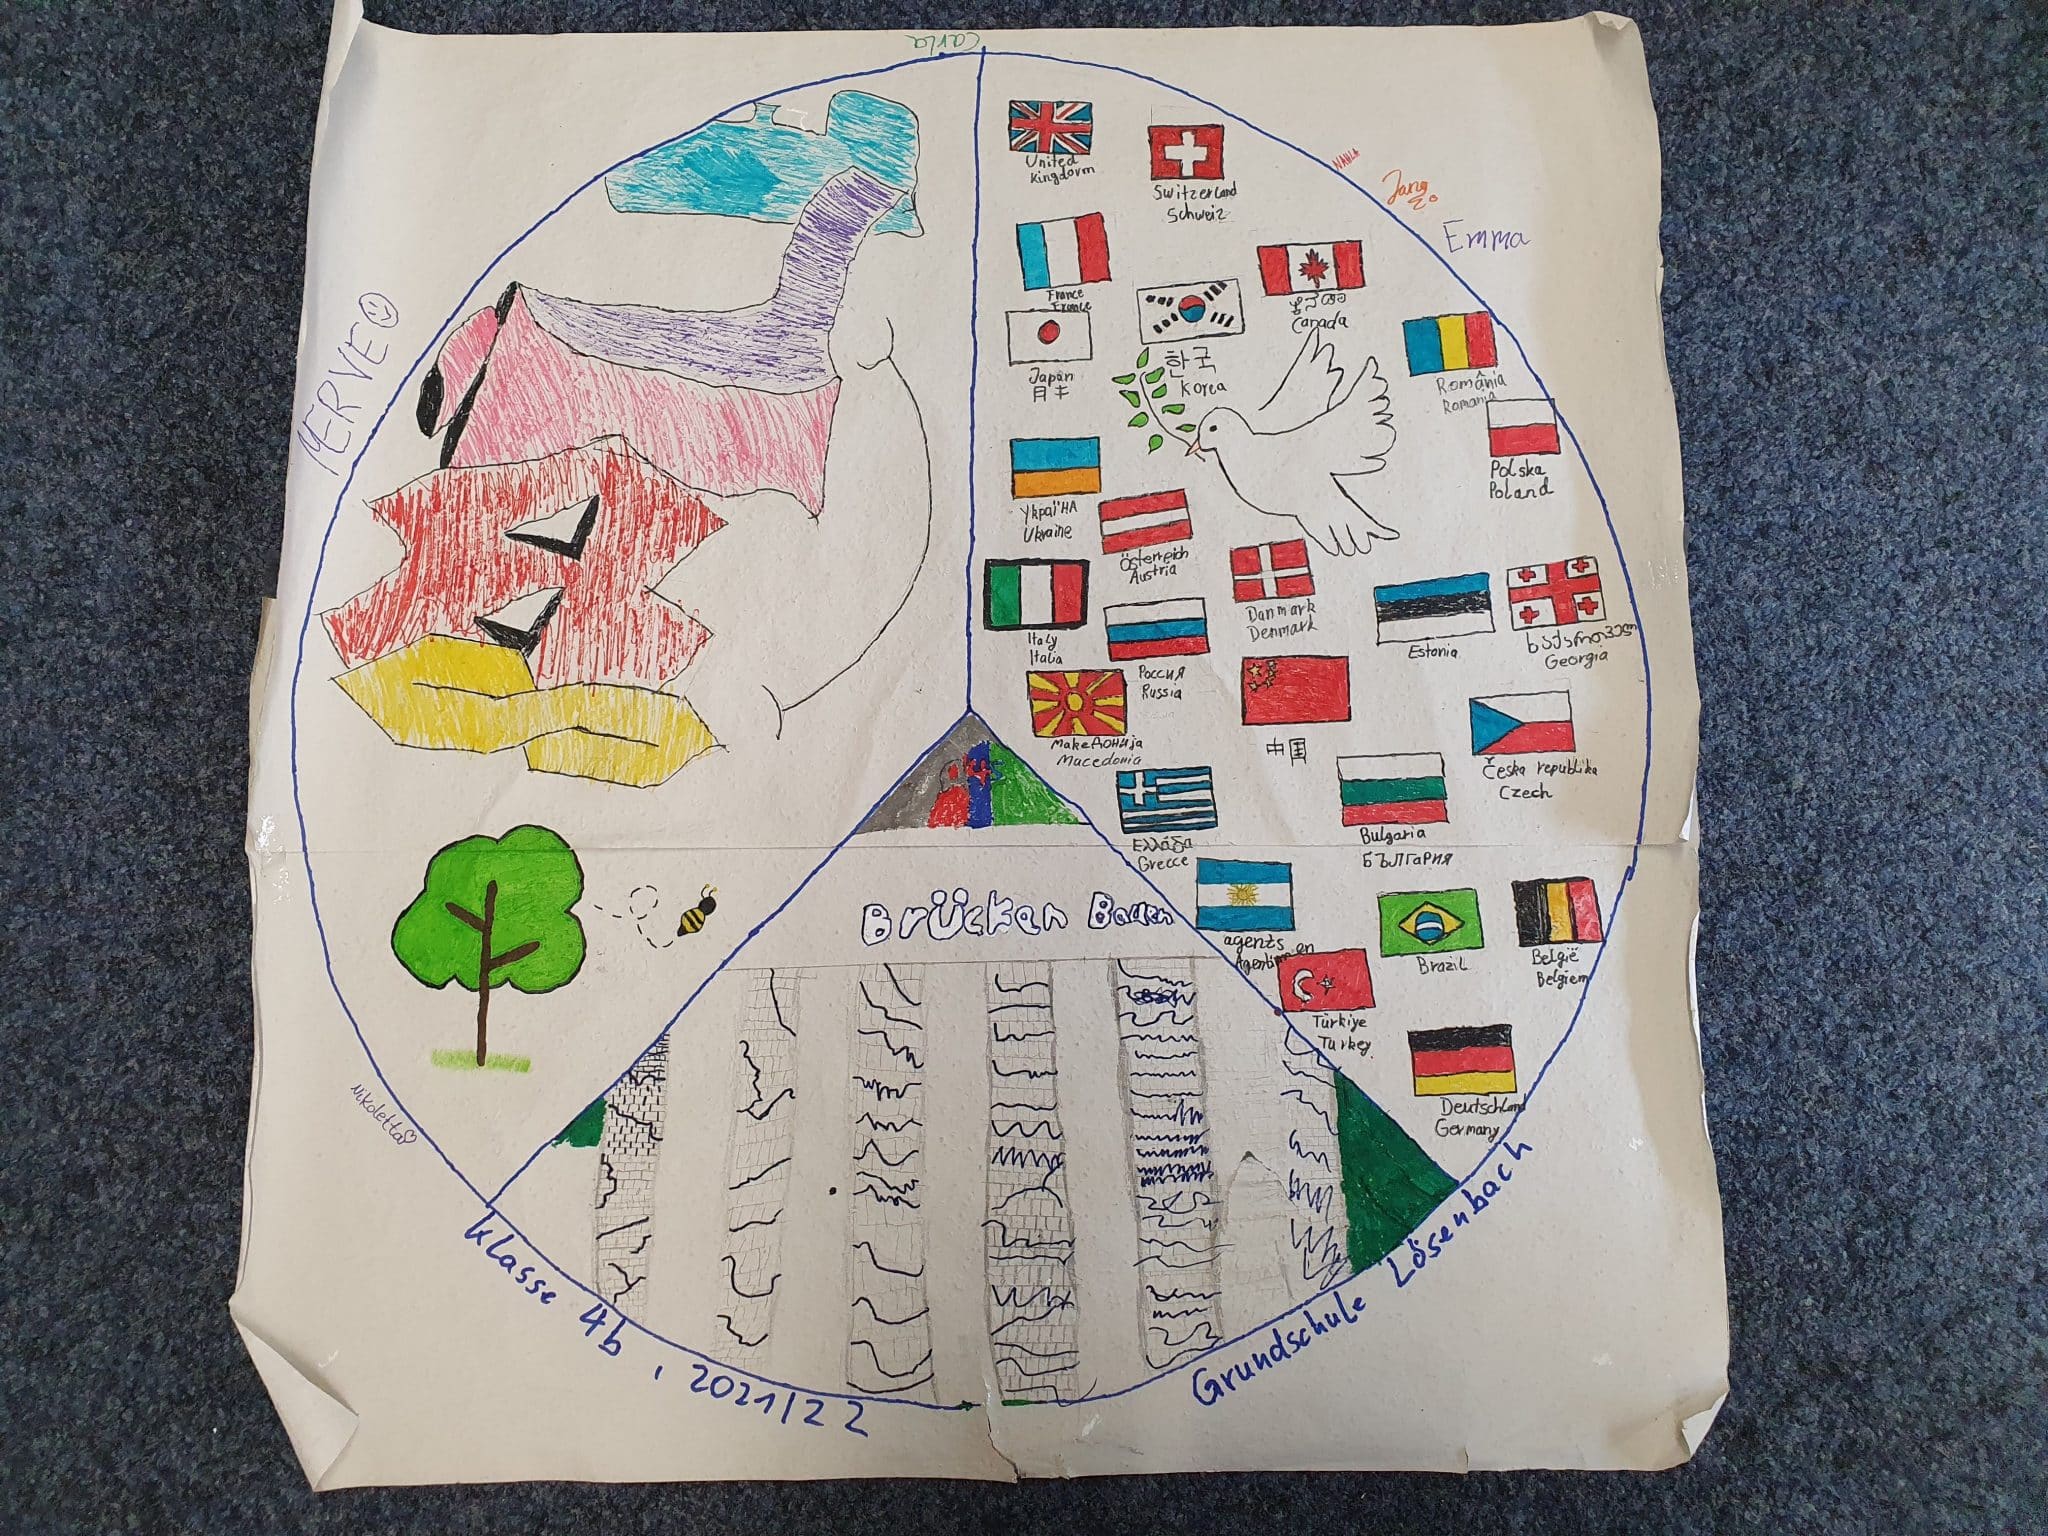 Carla
NAHLA
Emma
MERVE
United
Kingdorm
Switzerland
Schweiz
France
France
Canada
Japan
月キ
한국
Korea
România
Ramania
Polska
Poland
Україна
Ukraine
Österreich
Austria
Danmark
Denmark
Estonia
საქართველ
Georgia
Italy
Italia
Россия
Russia
МакеДОНИја
Macedonia
中国
Česka republika
Czech
Ελλάδα
Grecce
Bulgaria
БЪЛГАРИЯ
agents
en
Brücken Bauen
Brazil
België
Belgiem
Türkiye
Turkey
Deutschland
Germany
Nikoletta
Klasse 4b, 2021/22
Grundschule Lösenbach